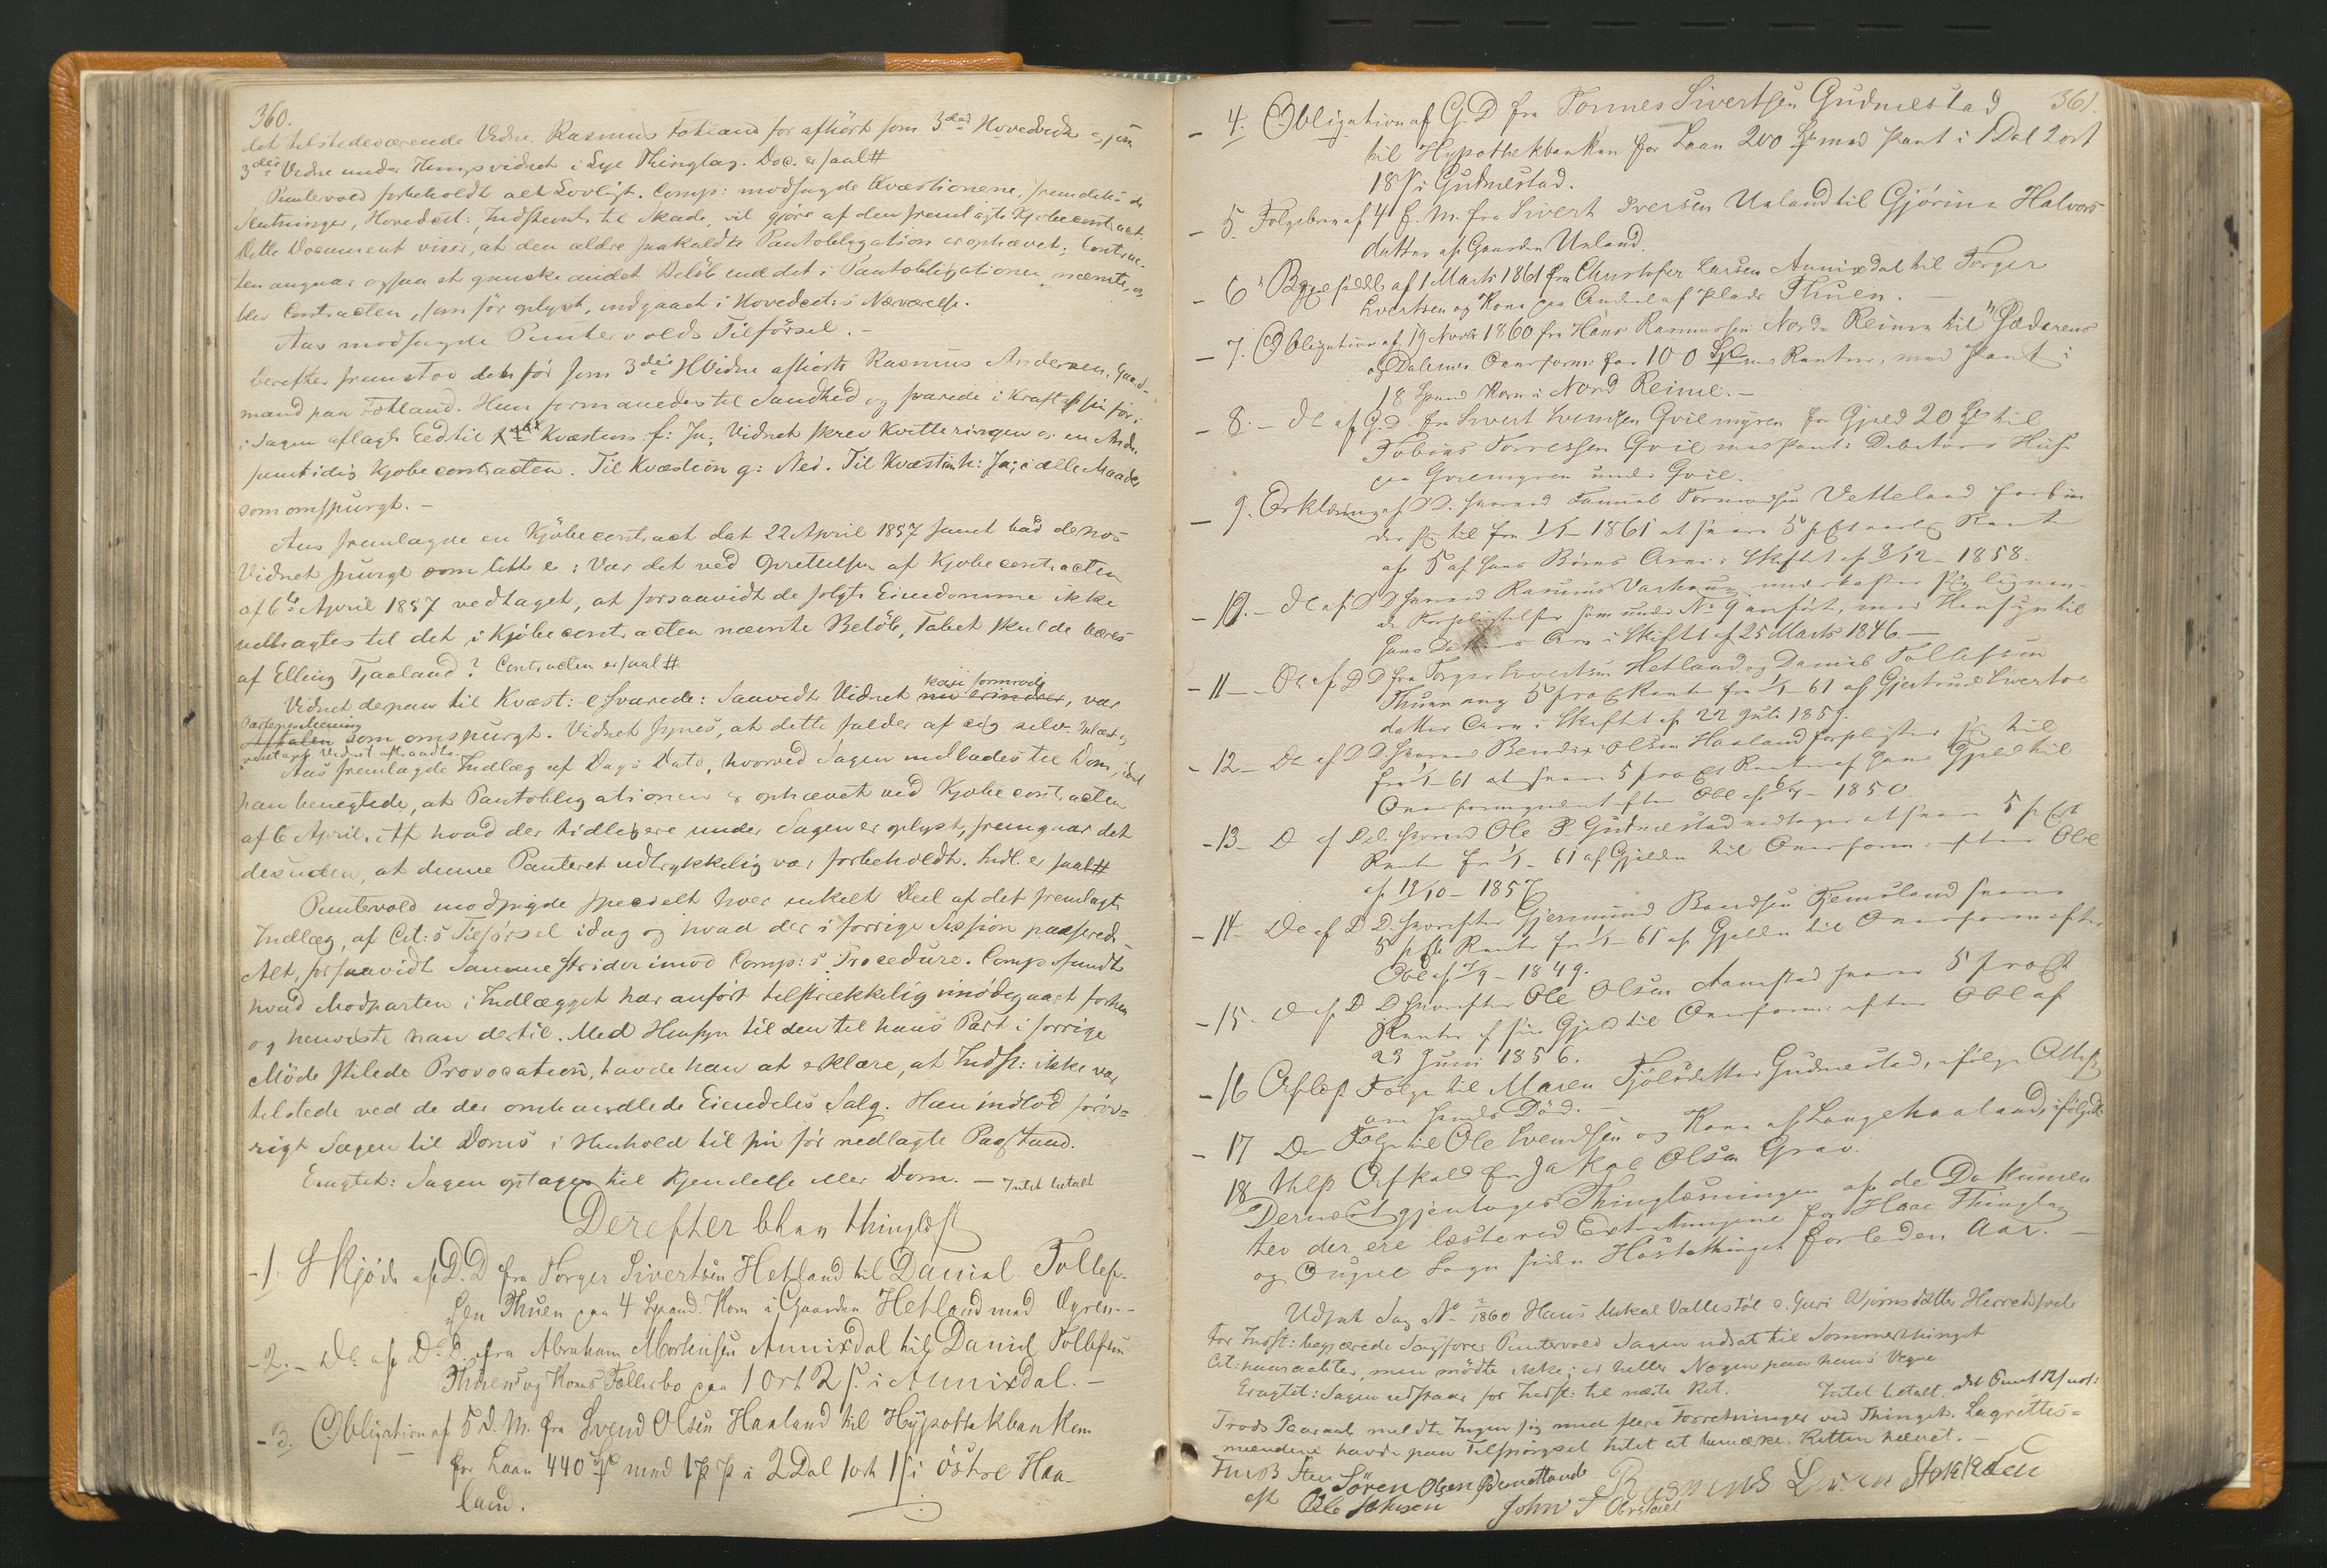 360.
det tilstedeværende Vidne, Rasmus Fotland før afhørt som 3die Hovedvidne og som
3die Vidne under Thingsvidnet i Lye Thinglag. Doc. er saal#
Puntervold forbeholdt alt Lovligt. Comp: modsagde Kvæstionene, fremdeles de
Slutninger, Hovedcit: Indstevnte til Skade, vil gjøre af den fremlagte Kjøbecontract.
Dette Document viser, at den ældre saakaldte Pantobligation er ophævet; Contrac-
ten angaar ogsaa et ganske andet Beløb end det i Pantobligationen nævnte, og
blev Contracten, som før oplyst, indgaaet i Hovedcit:s Nærværelse.
Aas modsagde Puntervolds Tilførsel. -
Derefter fremstod den før som 3die HVidne afhørte Rasmus Andersen, Gaard-
mand paa Fotland. Han formanedes til Sandhed og svarede i Kraft af sin før
i Sagen aflagte Eed til Kvæstion f: Ja; Vidnet skrev Kvitteringen og en Anden
samtidig Kjøbecontracten. Til Kvæstion g: Nei. Til Kvæstion h: Ja; i alle Maader
som omspurgt. -
Aas fremlagde en Kjøbecontract dat 22 April 1857 samt bad dernæst
Vidnet spurgt som litr e: Var det ved Oprettelsen af Kjøbecontracten
af 6te April 1857 vedtaget, at forsaavidt de solgte Eiendomme ikke
udbragtes til det, i Kjøbecontracten nævnte Beløb, Tabet skulde bæres
af Elling Tjaaland? Contracten er saal#
Vidnet derpaa til Kvæst: e svarede: Saavidt Vidnet nu erindrer, var
Aftalen som omspurgt. Vidnet synes, at dette falder af sig selv.
Aas fremlagde Indlæg af Dags Dato, hvorved Sagen indlades til Dom, idet
han benegtede, at Pantobligationen er ophævet ved Kjøbecontracten
af 6 April. Af hvad der tidligere under Sagen er oplyst, fremgaar det
desuden, at denne Panteret udtrykkelig var forbeholdt. Indl. er saal#
Puntervold modsagde specielt hver enkelt Deel af det fremlagte
Indlæg, af Cit:s Tilførsel idag og hvad der i forrige Session passerede
Alt, forsaavidt Samme strider imod Comp:s Procedure. Comp. fandt
hvad Modparten i Indlægget har anført tilstrækkelig imødegaaet forhen
og henviste han dertil. Med Hensyn til den til hans Part i forrige
Møde stilede Provocation, havde han at erklære, at Indst: ikke var
tilstede ved de der omhandlede Eiendeles Salg. Han indlod forøv=
rigt Sagen til Doms i Henhold til sin før nedlagte Paastand.
Eragtet: Sagen optages til Kjendelse eller Dom. - Intet betalt
Derefter blev thinglæst
- 1. Skjøde af D.D fra Torger Sivertsen Hetland til Daniel Tollef-
sen Thuen paa 4 Spand Korn i Gaarden Hetland med Ogren. -
- 2. - Do af D.D. fra Abraham Mortensen Annixdal til Daniel Tollefsen
Thuens og Kones Fællesbo paa 1 Ort 2 s. i Annixdal. -
- 3. Obligation af 5 D. M. fra Svend Olsen Haaland til Hypothekbanken
for Laan 440 Sp med 1 p p i 2 Dal 1 ort 1 s i østre Haa-
land.
361.
- 4. Obligation af G.D fra Tønnes Sivertsen Gudmestad
til Hypothekbanken for Laan 200 Sp mod Pant i 1 Dal 2 ort
18 s i Gudmestad.
- 5. Følgebrev af 4 f. M. fra Sivert Iversen Ualand til Gjørina Halvors-
datter af Gaarden Ualand.
- 6 Bygselseddel af 1 Marts 1861 fra Christofer Larsen Annixdal til Torger
Sivertsen og Kone paa Andeel af Plads Thuen. -
- 7. Obligation af 19 Novbr 1860 fra Hans Rasmussen Nord-Reime til Jæderens
og Dalernes Overform: for 100 Sp med Renter, mod Pant i
18 Spand Korn i Nord Reime. -
- 8. - Do af G.D. fra Sivert Svendsen Qvilemyren for Gjæld 20 Sp til
Tobias Torressen Qvile mod Pant i Debitors Huse
paa Qvilemyren under Qvile.
- 9. Erklæring af DD. hvorved Samuel Tormodsen Vetteland forbin
der sig til fra 1/1 - 1861 at svare 5 pCt aarlig Rente
af 5 af hans Børns Arv i Skifte af 8/12 - 1858.
- 10. - Do af DD hvorved Rasmus Varhaug underkaster sig lignen-
de Forpligtelser som under No 9 anført, med Hensyn til
hans Datters Arv i Skifte af 25 Marts 1846. -
- 11 - Do af DD fra Torger Sivertsen Hetland og Daniel Tollefsen
Thuen ang 5 pro Ct Rente fra 1/1 - 61 af Gjertrud Siverts-
datter Arv i Skifte af 22 Juli 1859.
- 12 - Do af DD hvorved Bendix Olsen Haaland forpligter sig til
fra 1/1 - 61 at svare 5 pro Ct Rente af hans Gjæld til
Overformynderiet efter Obl af - 1850
- 13 - Do af D.D. hvorved Ole P. Gudmestad vedtager at svare 5 pCt
Rente fra 1/1 - 61 af Gjælden til Overform: efter Obl
af 19/10 - 1857
- 14 - Do af D D. hvorefter Gjermund Baardsen Tjemsland svarer
5 pCt Rente fra 1/1 - 61 af Gjælden til Overform: efter
Obl af /9 - 1849.
- 15. Do af D D hvorefter Ole Olsen Aanestad svarer 5 proCt
Rente af sin Gjæld til Overform: efter Obl af
23 Juni 1856.
- 16 Aflæst Følge til Maren Fjølsdatter Gudmestad, ifølge Attest
om hendes Død. -
- 17 Do Følge til Ole Svendsen og Kone af Langehaaland, ifølge do
18 Aflæst Afkald fra Jakob Olsen Grav.
Dernæst gjentoges Thinglæsningen af de Dokumen
ter der ere læste ved Extrathingene for Haae Thinglag
og Ougne Sogn siden Høstethinget forleden Aar. -
Udsat Sag No /1860 Hans Mikal Vallestøl c. Guri Bjørnsdatter Herredsvela
For Indst: begjærede Sagfører Puntervold Sagen udsat til Sommerthinget
Cit: paaraabtes, men mødte ikke; ei heller Nogen paa hans Vegne
Eragtet: Sagen udsættes for Indst: til næste Ret. Intet betalt.
Trods Paaraab meldte Ingen sig med flere Forretninger ved Thinget. Lagrettes=
mændene havde paa Tilspørgsel Intet at bemærke. Retten hævet. -
Søren Olsen Rasmus Larsen Stokkelen
Ole Johnsen John T Obrestad